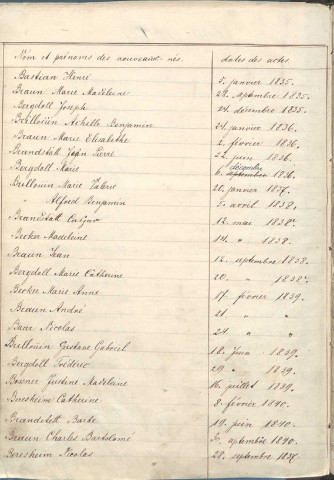 Nom et prénoms des nouveaux-nés. dates des actes.
Bastian Henri 5. janvier 1835.
Braun Marie Madeleine 29. septembre 1835.
Bergdoll Joseph 24. décembre 1835.
Brellouin Achille Benjamin 24. janvier 1836.
Braun Marie Elisabethe 2. février 1836.
Brandstätt Jean Pierre 22. juin 1836.
Bergdoll Marie 6. septembre décembre 1836.
Brellouin Marie Valérie 20. janvier 1837.
" Alfred Benjamin 3. avril 1838.
Brandstätt 12. mai 1838.
Becker Madeleine 14. " 1838.
Braun Jean 12. septembre 1838.
Bergdoll Marie Catherine 20. " 1838.
Becker Marie Anne 17. février 1839.
Braun André 21. " "
Baar Nicolas 24. " "
Brellouin Gustave Gabriel 12. juin 1839.
Bergdoll Fréderic 29. " 1839.
Justine Madeleine 16. juillet 1839.
Beresheim Catherine 8. février 1840.
Brandstett Barbe 19. juin 1840.
Braun Charles Bartolomé septembre 1840.
Beresheim Nicolas 28. septembre 1837.